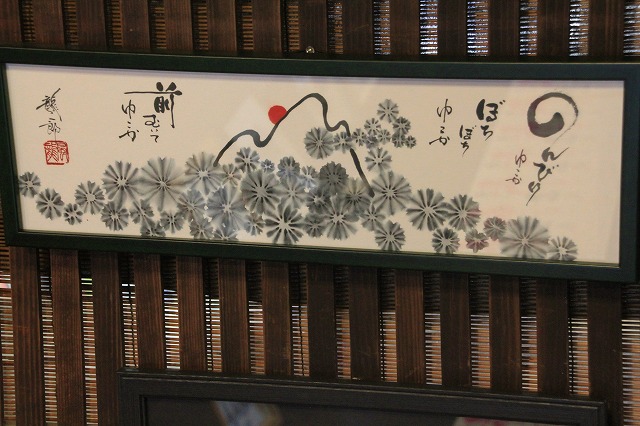 のんびり
ゆこか
ぼち
ぼち
ゆこか
前
むいて
ゆこか
龍一郎